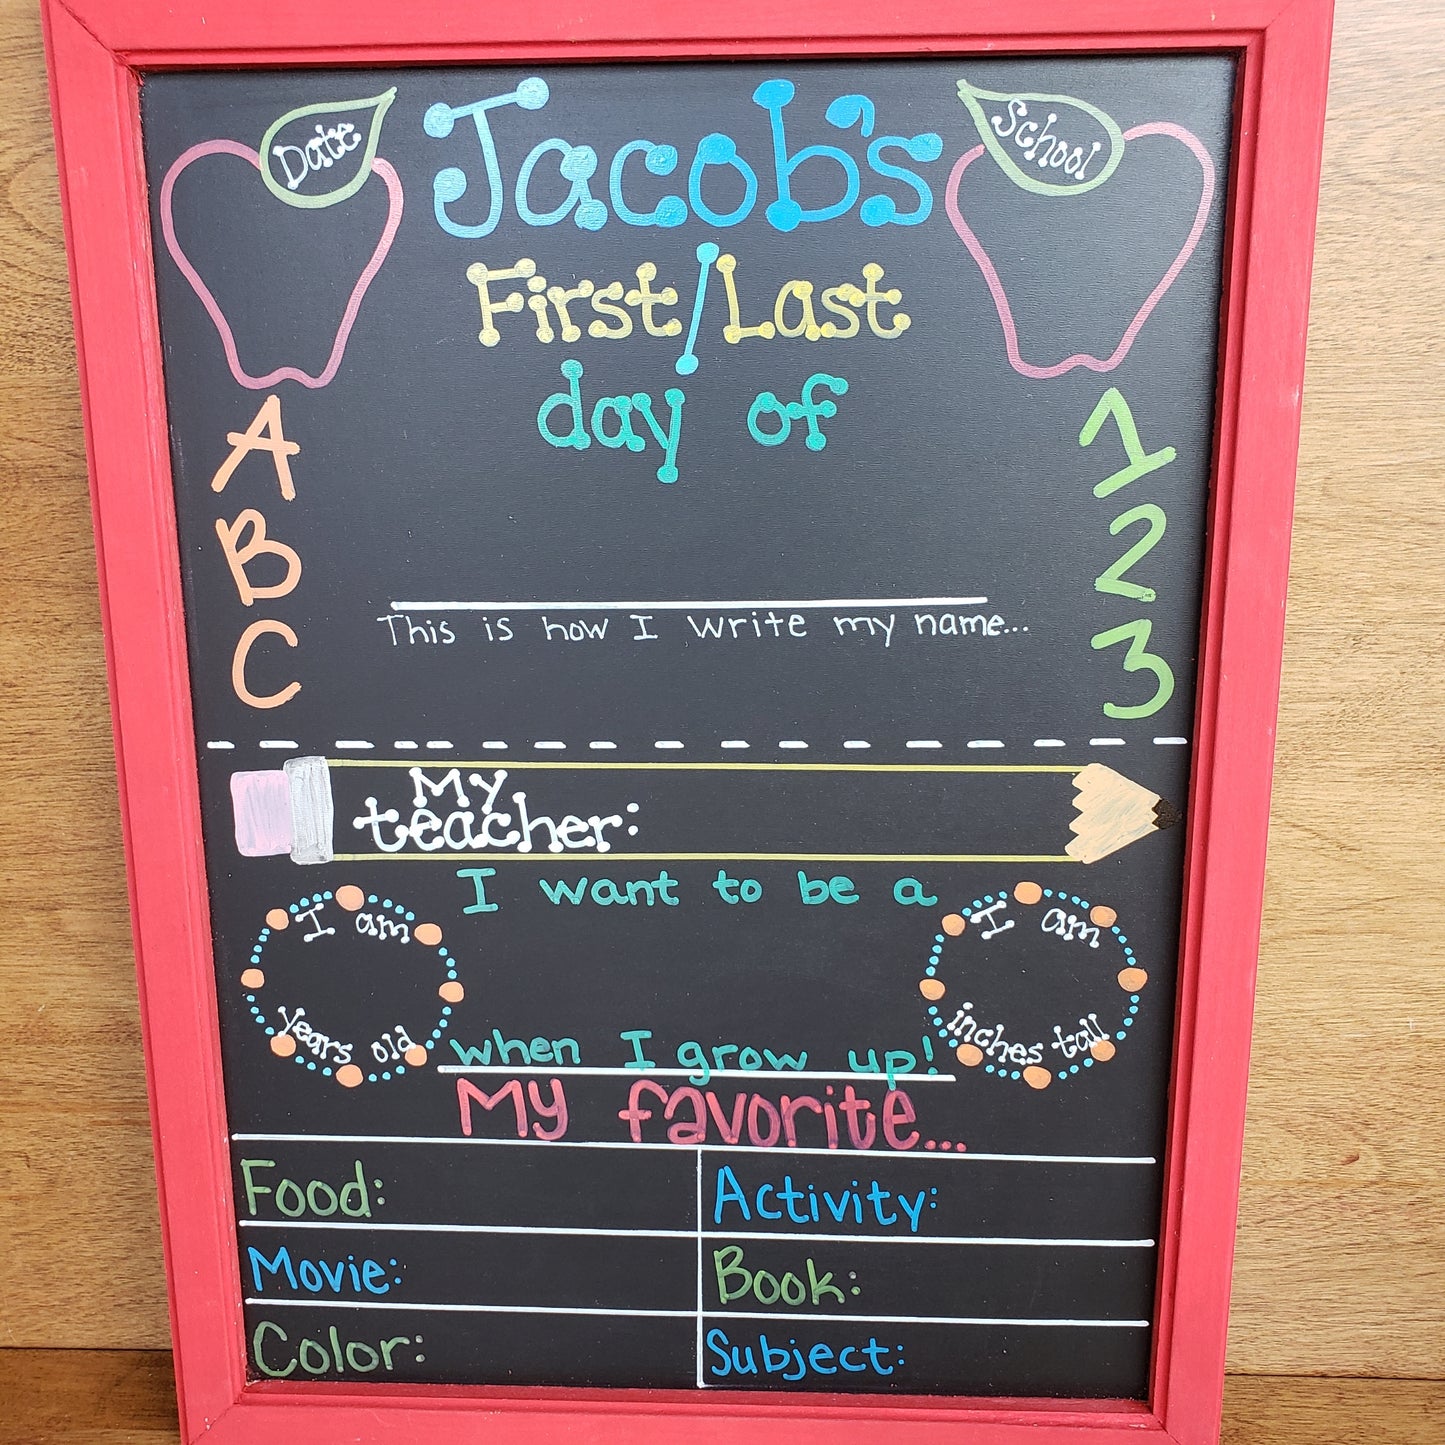 Date
Jacob's
School
First/Last
day of
A
B
C
1
2
3
This is how I write my name...
My
teacher:
I want to be a
I am
years old
I am
inches tall
when I grow up!
My favorite...
Food:
Activity:
Movie:
Book:
Color:
Subject: